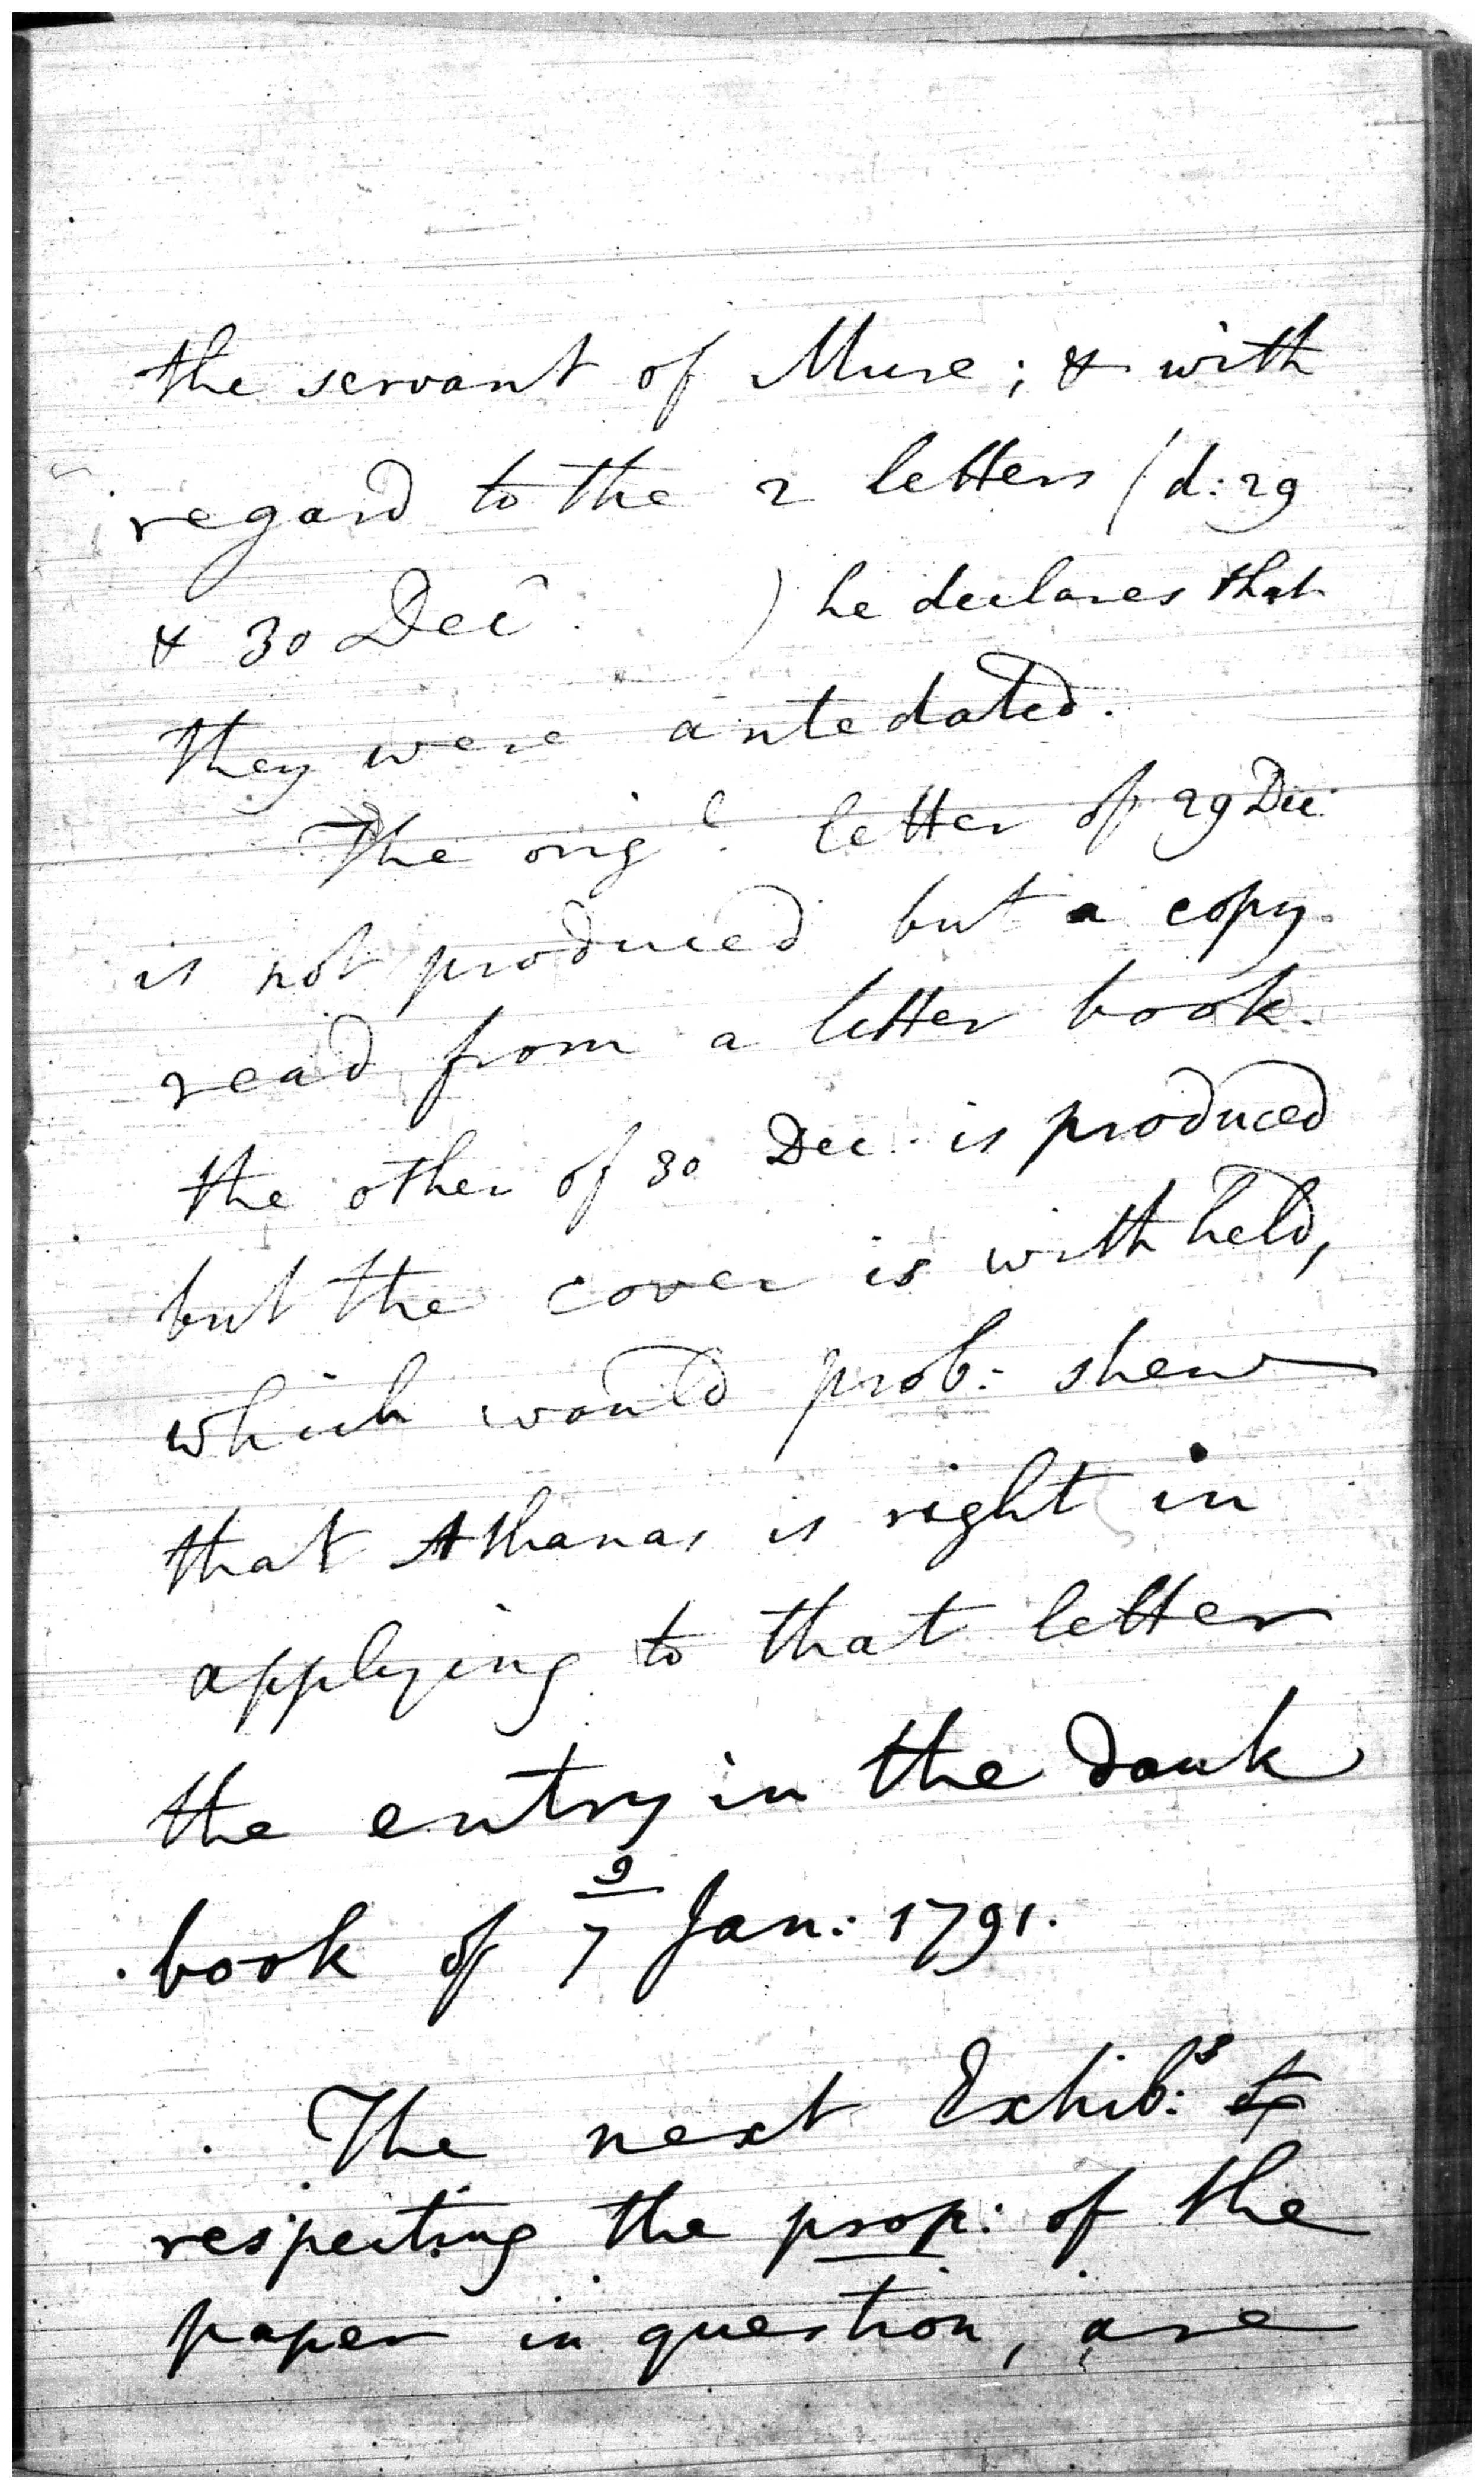 the servant of Muse; & with
regard to the 2 letters (d: 29
& 30 Dec. ) he declares that
they were antedated.
The orig.l letter of 29 Dec.
is not produced but a copy
read from a letter book.
the other of 30 Dec. is produced
but the cover is withheld,
which would prob: shew
that Athanas is right in
applying to that letter
the entry in the dauk
book of 9/7 Jan: 1791.
The next Exhib:s
respecting the prop: of the
paper in question, are